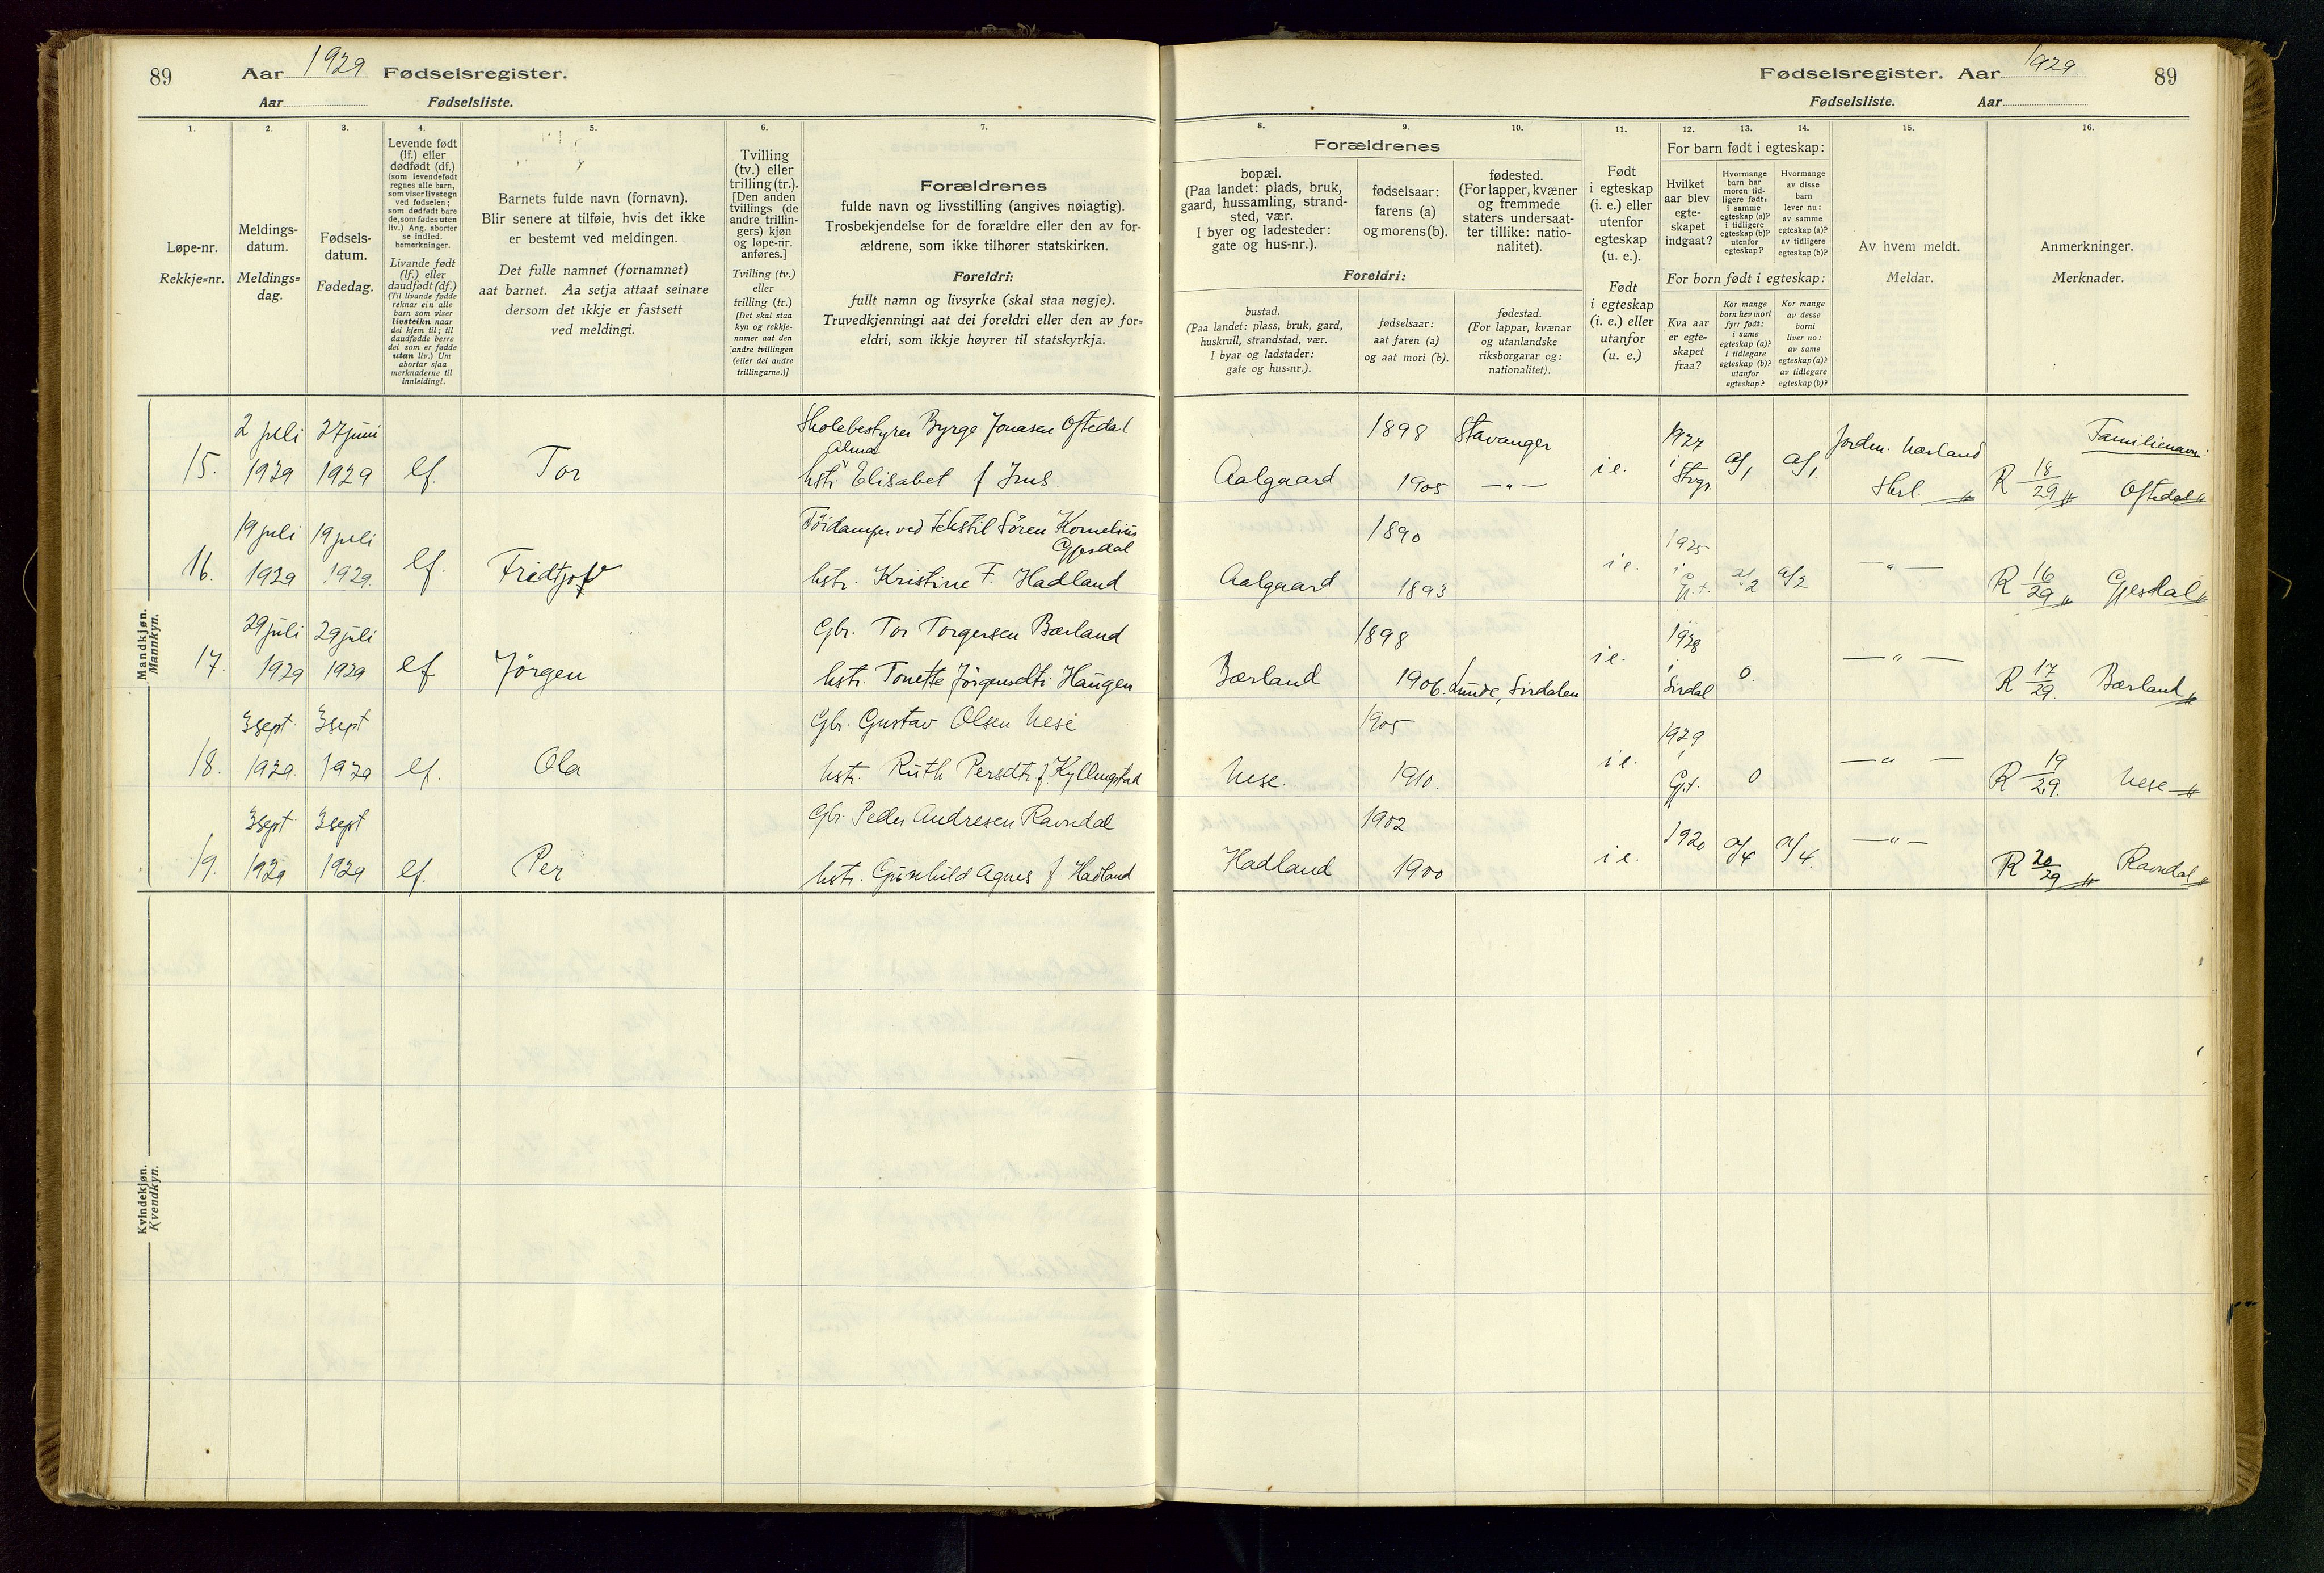 89 Aar 1929 Fødselsregister.
Aar Fødselsliste.
Fødselsregister. Aar 1929 89
Fødselsliste. Aar
1.
Løpe-nr.
Rekkje=nr.
2.
Meldings-
datum.
Meldings=
dag.
3.
Fødsels-
datum.
Fødedag.
4.
Levende født
(lf.) eller
dødfødt (df.)
(som levendefødt
regnes alle barn,
som viser livstegn
ved fødselen;
som dødfødt bare
de, som fødes uten
liv.) Ang. aborter
se indled.
bemerkninger.
Livande født
(lf.) eller
daudfødt (df.)
(Til livande fødde
reknar ein alle
barn som viser
livsteikn naar
dei kjem til; til
daudfødde berre
dei som er fødde
utan liv.) Um
abortar sjaa
merknaderne til
innleidingi.
5.
Barnets fulde navn (fornavn).
Blir senere at tilføie, hvis det ikke
er bestemt ved meldingen.
Det fulle namnet (fornamnet)
aat barnet. Aa setja attaat seinare
dersom det ikkje er fastsett
ved meldingi.
6.
Tvilling
(tv.) eller
trilling (tr.).
[Den anden
tvillings (de
andre trillin-
gers) kjøn
og løpe-nr.
anføres.]
Tvilling (tv.)
eller
trilling (tr.)
[Det skal staa
kyn og rekkje-
numer aat den
andre tvillingen
(eller dei andre
trillingarne.)]
7.
Forældrenes
fulde navn og livsstilling (angives nøiagtig).
Trosbekjendelse for de forældre eller den av for-
ældrene, som ikke tilhører statskirken.
Foreldri:
fullt namn og livsyrke (skal staa nøgje).
Truvedkjenningi aat dei foreldri eller den av for=
eldri, som ikkje høyrer til statskyrkja.
Forældrenes
8.
bopæl.
(Paa landet: plads, bruk,
gaard, hussamling, strand-
sted, vær.
I byer og ladesteder:
gate og hus-nr.).
9.
fødselsaar:
farens (a)
og morens (b).
10.
fødested.
(For lapper, kvæner
og fremmede
staters undersaat-
ter tillike: natio-
nalitet).
Foreldri:
bustad.
(Paa landet: plass, bruk, gard,
huskrull, strandstad, vær.
I byar og ladstader:
gate og hus=nr.).
fødselsaar:
aat faren (a)
og aat mori (b).
fødestad.
(For lappar, kvænar
og utanlandske
riksborgarar og:
nationalitet).
11.
Født
i egteskap
(i. e.) eller
utenfor
egteskap
(u. e.).
Født
i egteskap
(i. e.) eller
utanfor
egteskap
(u. e.)
12. 13. 14.
For barn født i egteskap:
Hvilket
aar blev
egte-
skapet
indgaat?
Hvormange
barn har
moren tid-
ligere født:
i samme
egteskap (a)?
i tidligere
egteskap (b)?
utenfor
egteskap?
Hvormange
av disse
barn
lever nu:
av samme
egteskap (a)?
av tidligere
egteskap (b)?
For born født i egteskap:
Kva aar
er egte=
skapet
fraa?
Kor mange
born hev mori
fyrr født:
i same
egteskap (a)?
i tidlegare
egteskap (b)?
utanfor
egteskap?
Kor mange
av desse
borni
liver no:
av same
egteskap (a)?
av tidlegare
egteskap (b)?
15.
Av hvem meldt.
Meldar.
16.
Anmerkninger.
Merknader.
Mandkjøn.
Mannkyn.
15. 2 juli 1929 27 juni 1929 lf. Tor
Skolebestyrer Byrge Jonasen Oftedal
Alma
hstr. Elisabet f
Aalgaard 1898 1905 Stavanger —"— i e. 1927 i Stvgr. a/1 a/1. Jordm. Harland
R 18/29 Familienavn: Oftedal
16. 19 juli 1929 19 juli 1929. lf. Fridtjof
ved tekstil Sören Kornelius
Gjesdal
hstr. Kristine F. Hadland
Aalgaard 1890 1893 i e. 1925 i Gj.t. a/2 a/2 —"—
R 16/29 Gjesdal
17. 29 juli 1929 29 juli 1929 lf Jörgen
Gbr. Tor Torgersen Bærland
hstr. Tonette Jörgensdtr Haugen
Bærland 1898 1906. Lunde, Sirdalen i e. 1928 i Sirdal 0. —"—
R 17/29. Bærland
18. 3 sept 1929. 3 sept 1929 lf. Ola
Gbr. Gustav Olsen Nese
hstr. Ruth Persdtr f. Kyllingstad
Nese. 1905 1910. i e. 1929 i Gj.t. 0 —"—
R 19/29. Nese
19. 3 sept 1929 3 sept 1929 lf. Per
Gbr. Peder Andresen Ravndal
hstr. Gunhild Agnes f Hadland
Hadland 1902 1900 i e. 1920 a/4 a/4. —"—
R 20/29 Ravndal
Kvindekjøn.
Kvendkyn.